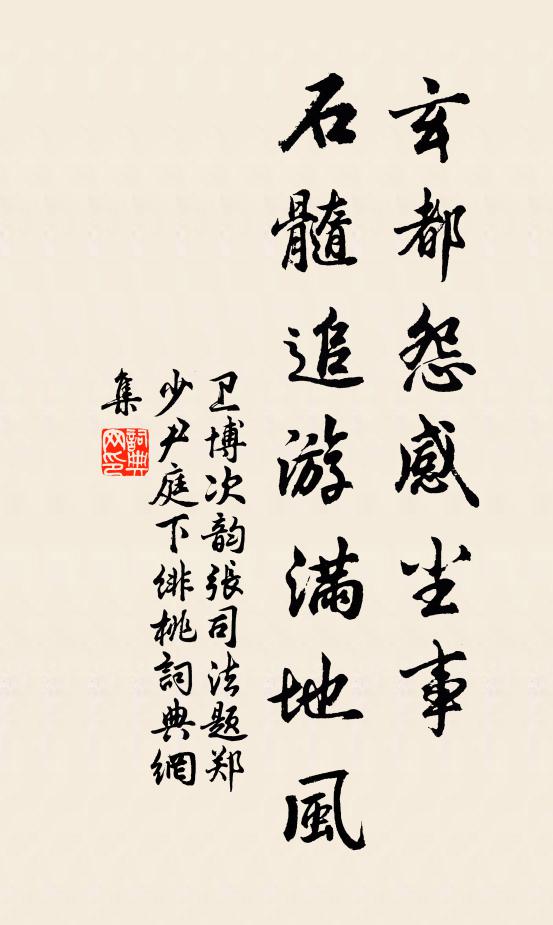 玄都怨感尘事
石髓追游满地風
卫博次韵張司法题郑
少尹庭下绯桃詞典網
集
詞典网印